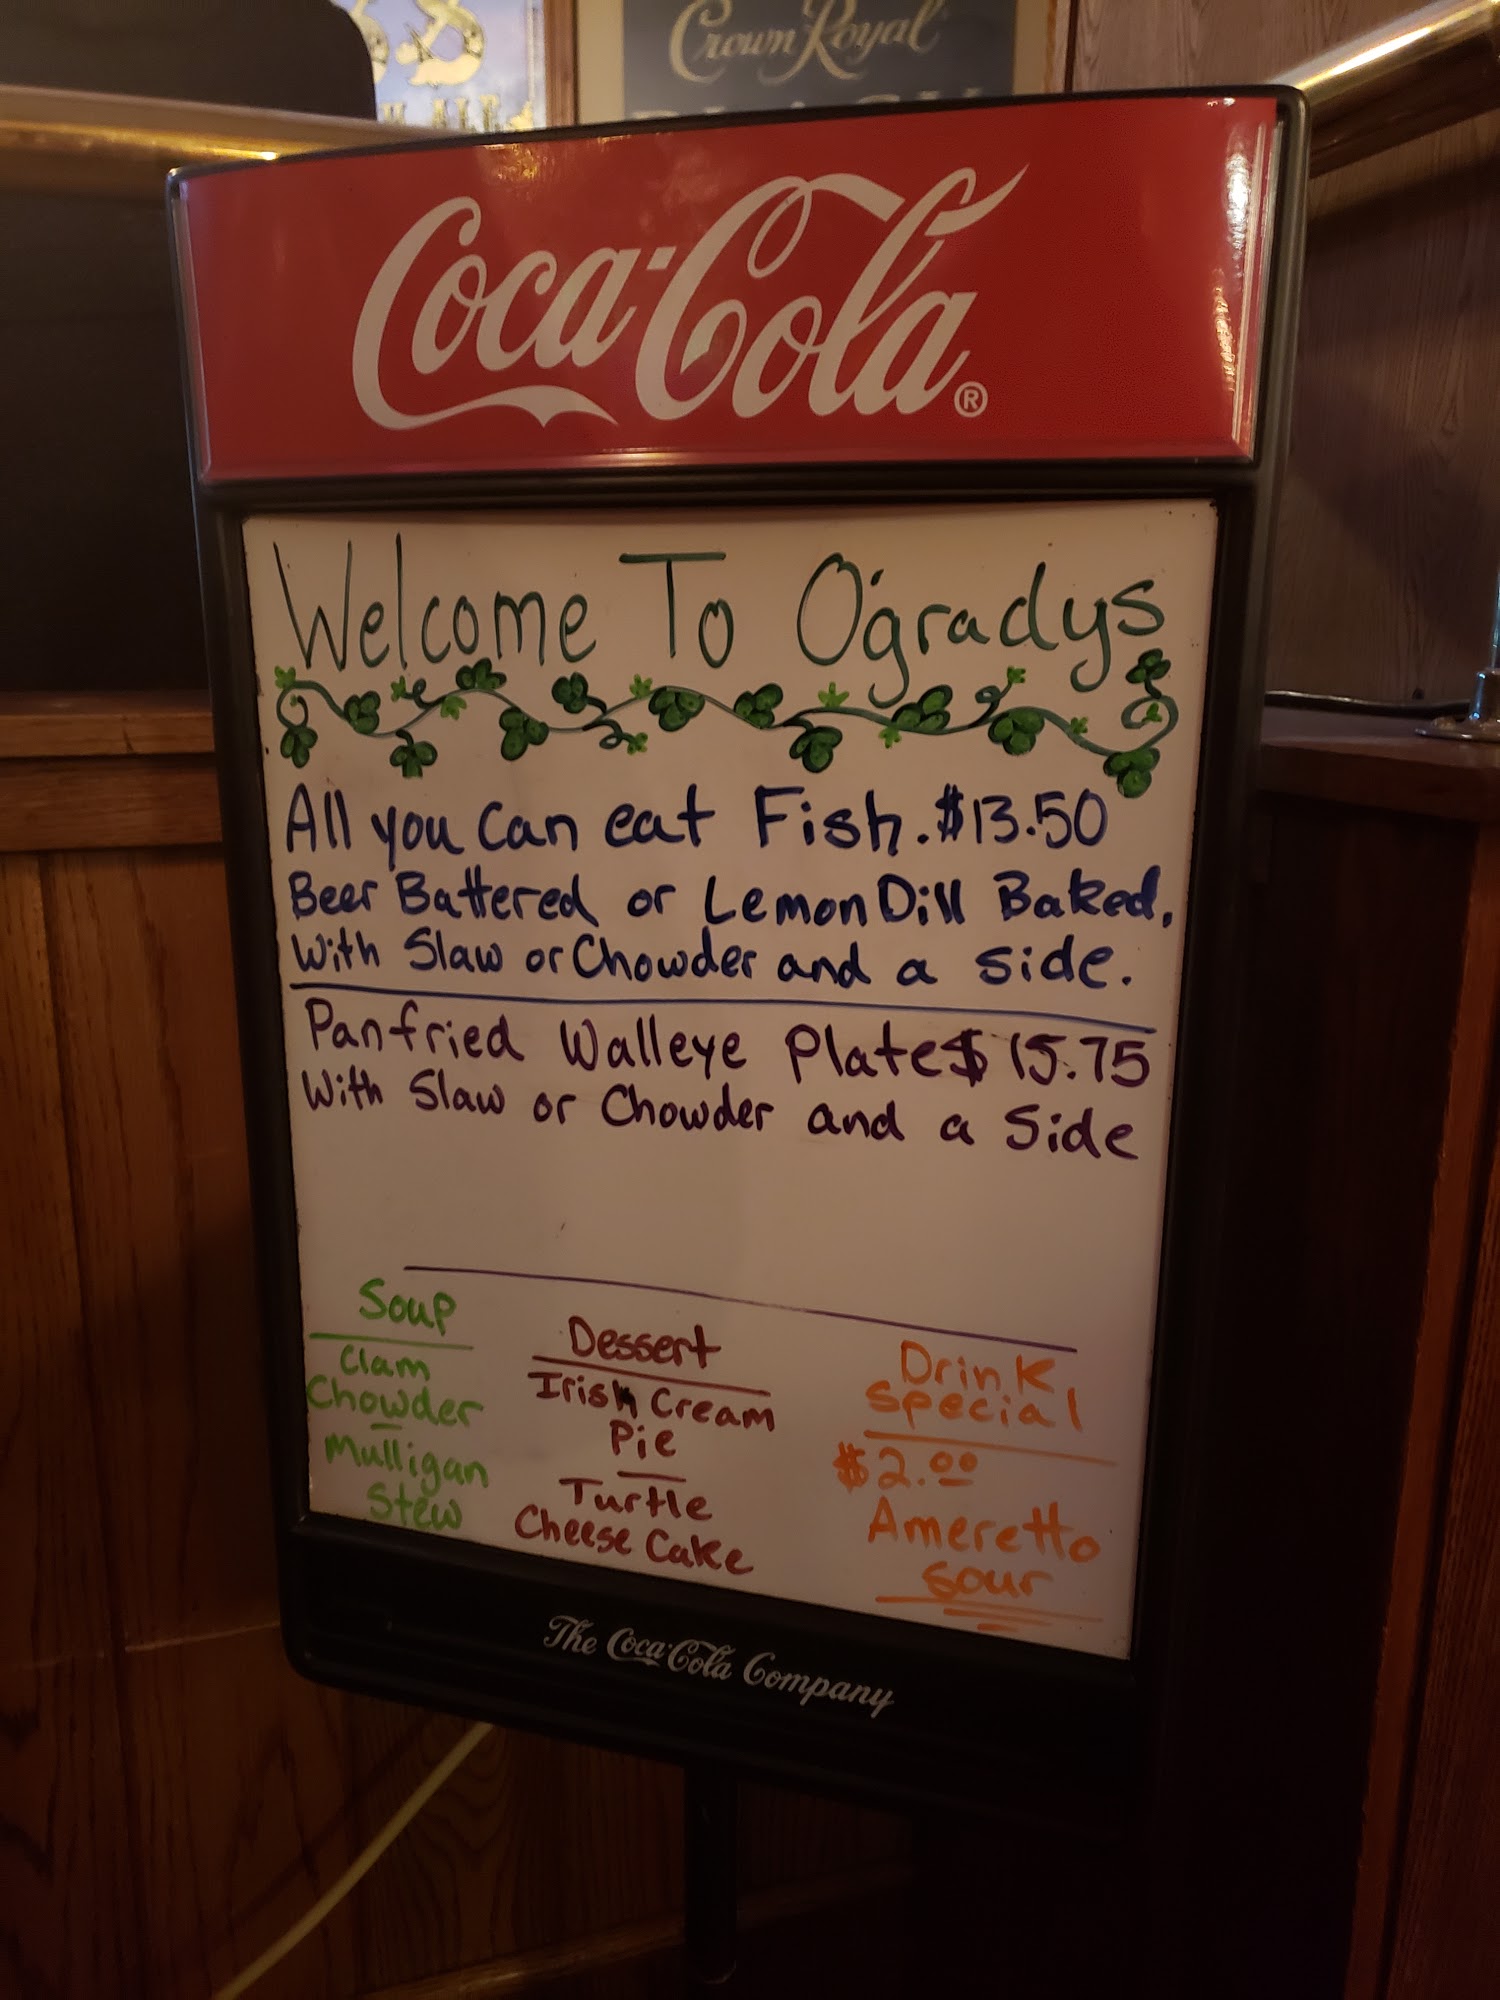 Crown Royal
Coca-Cola®
Welcome To O'gradys
All you can eat Fish. $13.50
Beer Battered or Lemon Dill Baked,
with Slaw or Chowder and a side.
Panfried Walleye Plate $15.75
With Slaw or Chowder and a Side
Soup
Clam
Chowder
Mulligan
Stew
Dessert
Irish Cream
Pie
Turtle
Cheese Cake
Drink
special
$2.00
Ameretto
sour
The Coca-Cola Company